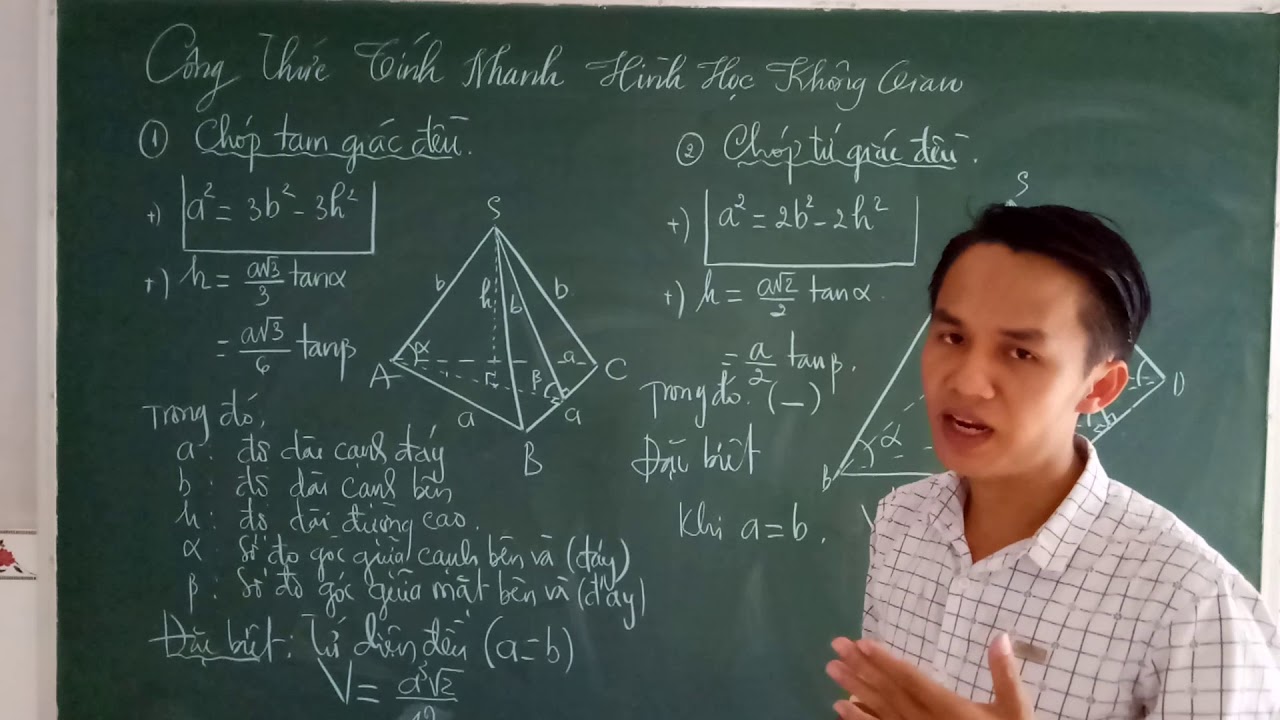 Công Thức Tính Nhanh Hình Học Không Gian
① Chóp tam giác đều.
+) a² = 3b² - 3h²
+) h = a√3/3 tanα
= a√3/6 tanβ
Trong đó,
a : độ dài cạnh đáy
b : độ dài cạnh bên
h : độ dài đường cao.
α : Số đo góc giữa cạnh bên và (đáy)
β : Số đo góc giữa mặt bên và (đáy)
Đặc biệt: Tứ diện đều (a=b)
V = a³√2/12
S
b
h
b
b
A
α
a
C
β
a
a
B
② Chóp tứ giác đều.
+) a² = 2b² - 2h²
+) h = a√2/2 tanα.
= a/2 tanβ.
Trong đó. (—)
Đặc biệt
Khi a=b.
S
D
α
B